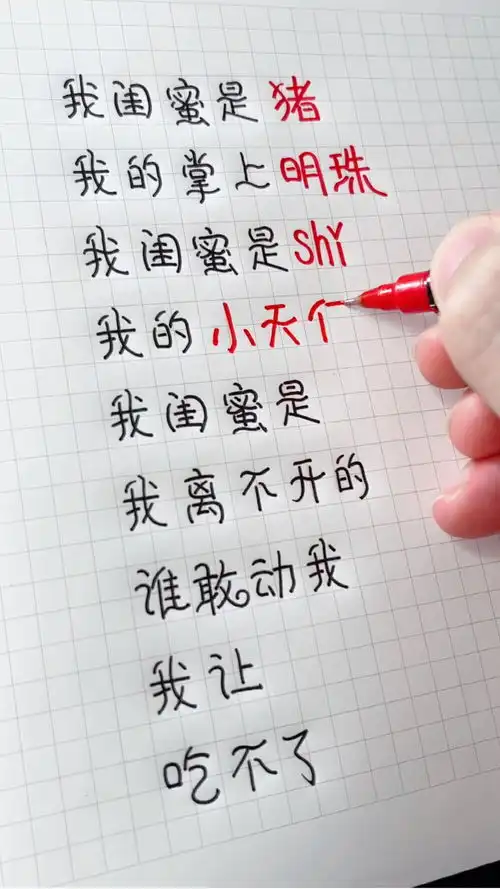 我闺蜜是猪
我的掌上明珠
我闺蜜是shǐ
我的小天
我闺蜜是
我离不开的
谁敢动我
我让
吃不了